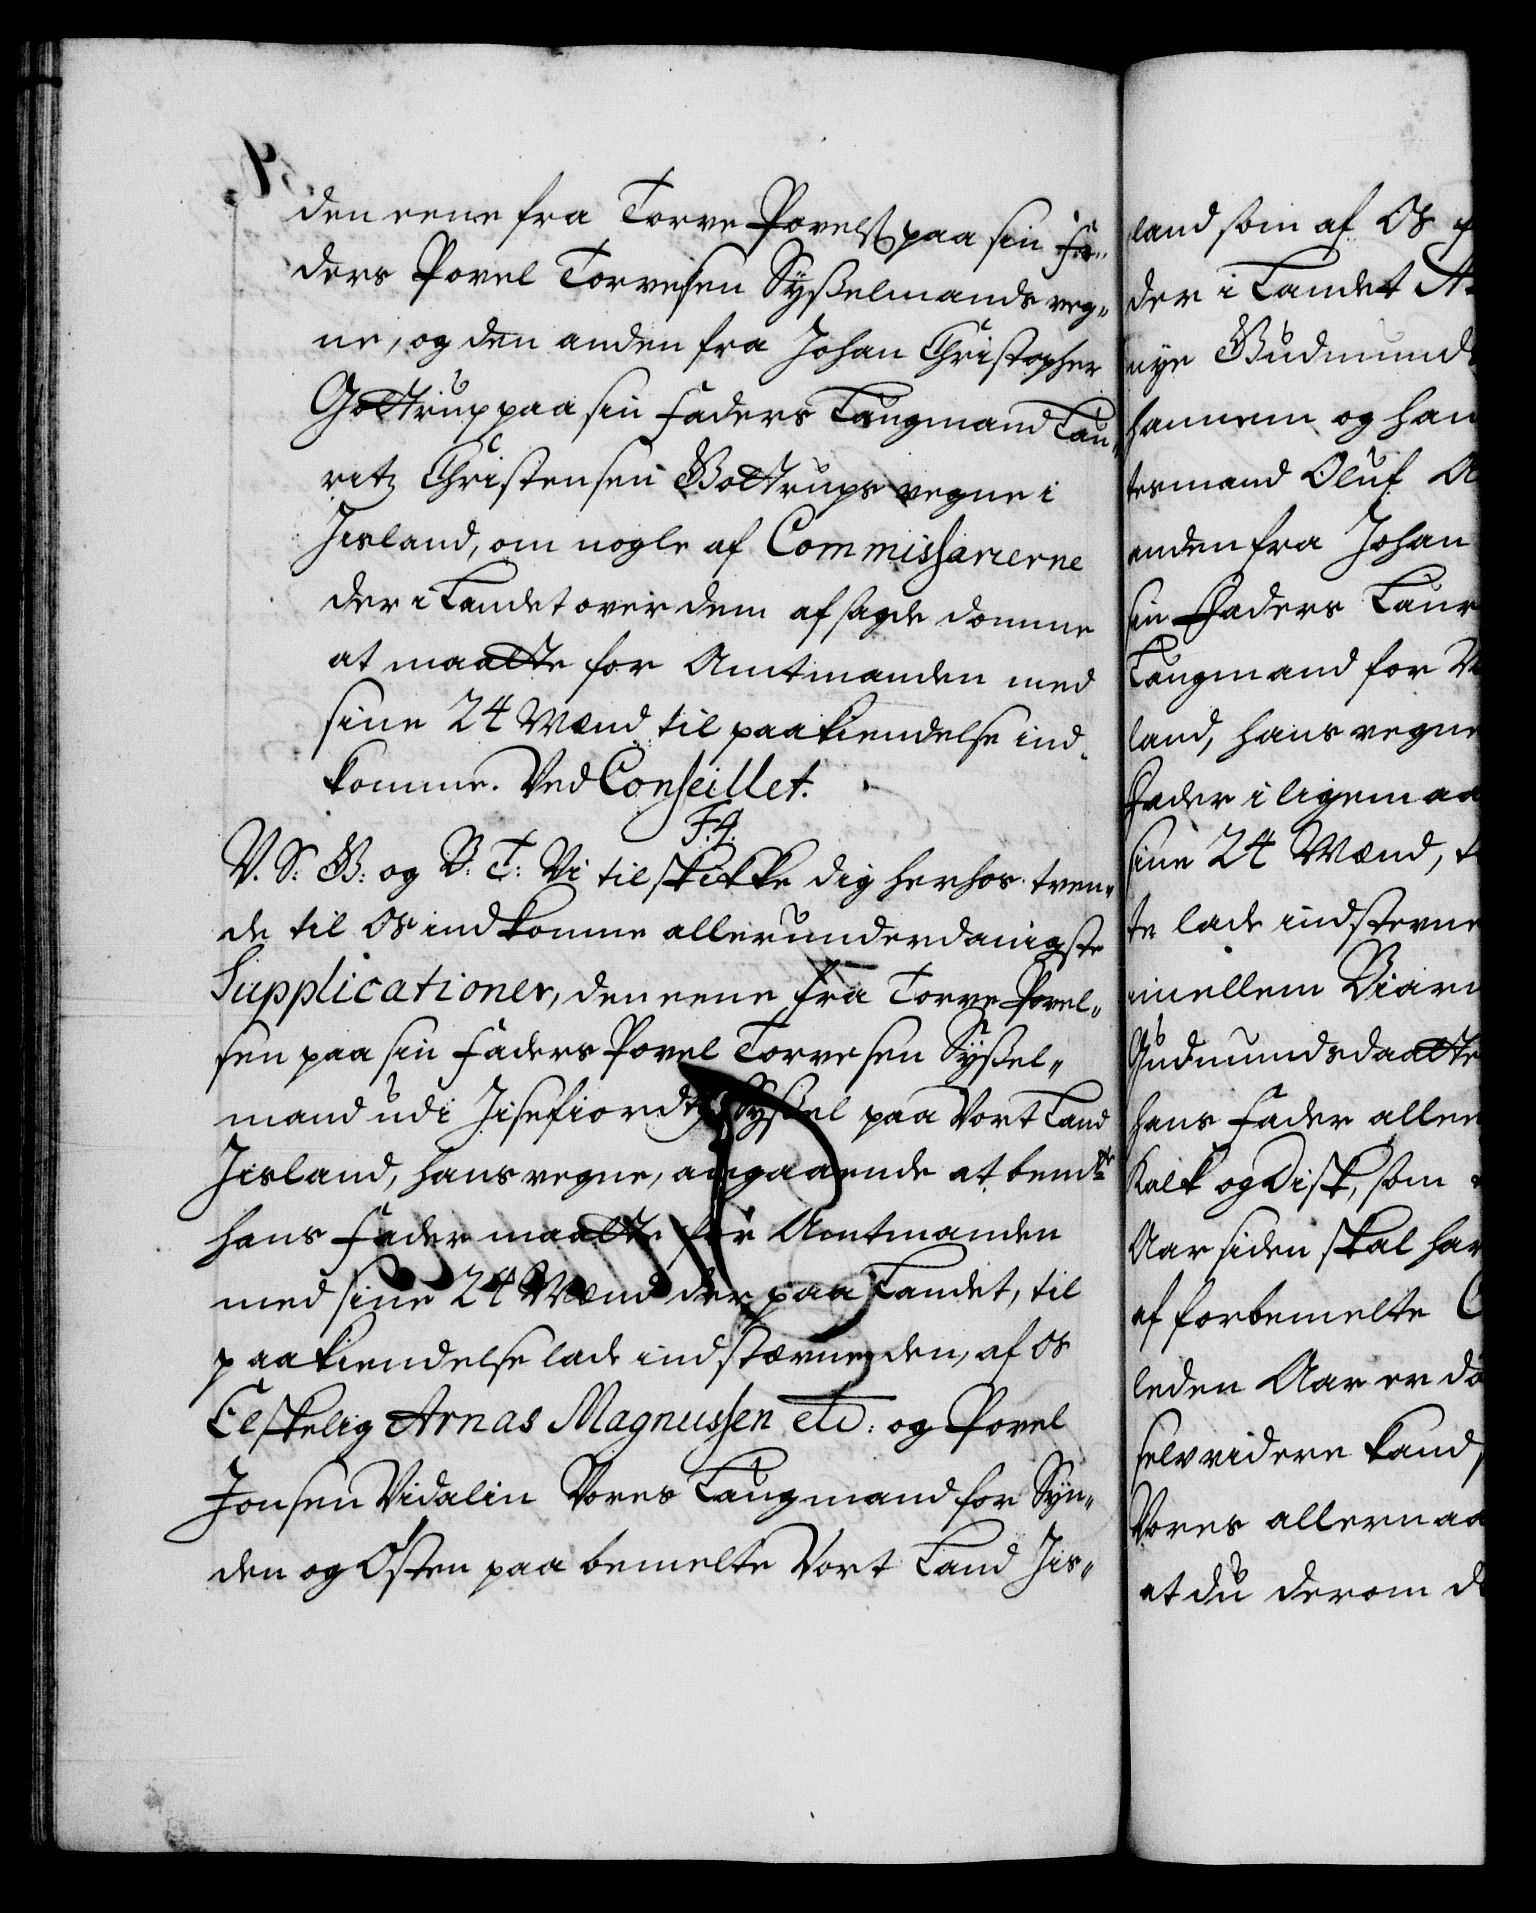 den eene fra Torve Povels: paa sin Fa„
ders Povel Torvesen Sysselmands veg„
ne, og den anden fra Johan Christopher
Gottrup paa sin Faders Laugmand Lau„
ritz Christensen Gottrups vegne i
Jisland, om nogle af Commissarierne
der i Landet over dem afsagde domme
at maatte for Amtmanden med
sine 24 Mænd til paakiendelse ind„
komme. Ved Conseillet.
F. 4.
V. S: G: og B: T: Vi tilskikke dig herhos tven„
de til Os indkomne allerunderdanigste
Supplicationer, den eene fra Torve Povel„
sen paa sin Faders Povel Torvesen Syssel„
mand udi Jisefiordtz Syssel paa Vort Land
Jisland, hans vegne, angaaende at bemte
hans Fader maatte for Amtmanden
med sine 24 Mænd der paa Landet, til
paakiendelse lade indstævne den, af Os
Elskelig Arnas Magnussen etc: og Povel
Jonsen Vidalin Vores Laugmand for Syn„
den og Østen paa bemelte Vort Land Jis„
land som af Os
der i Landet
nye Gudmunds
hannem og han
tesmand Oluf
anden fra Johan
sin Faders Laur
Laugmand for
land, hans vegne
Fader i ligemaa
sine 24 Mænd,
te lade indstevne
imellem Biarn
Gudmundsdaatte
hans Fader aller
Kalk og Disk, som
Aar siden skal har
af forbemelte
leden Aar er dø
selv videre kand
Vores allernaa
at du derom